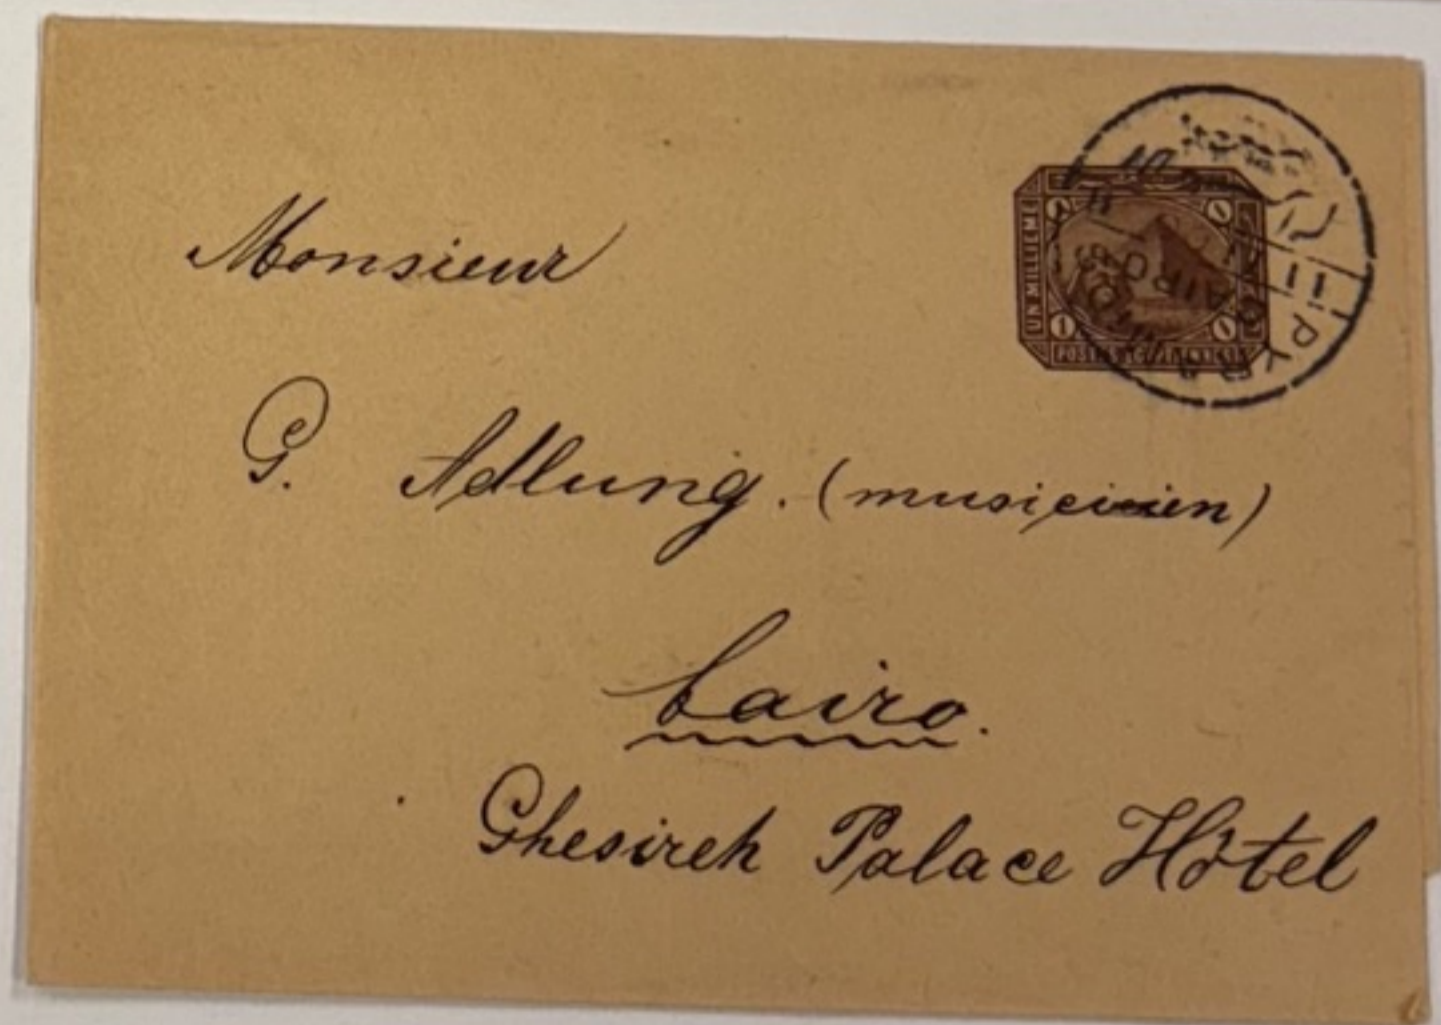 Monsieur
G. Adlung. (musicien)
Cairo.
Ghesireh Palace Hôtel
UN MILLIEME
POSTES EGYPTIENNES
1
1
CAIRO